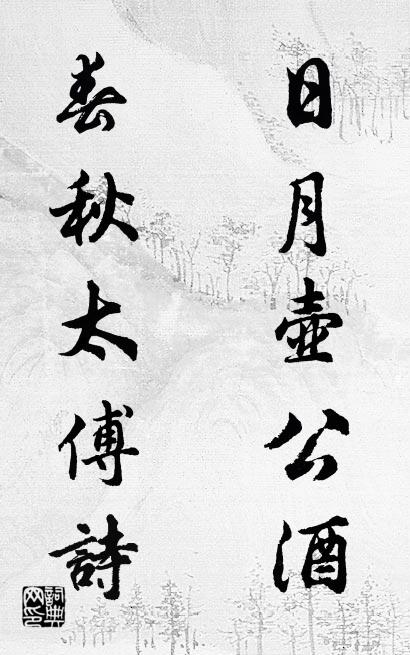 日月壺公酒
春秋太傅詩
詞典网印